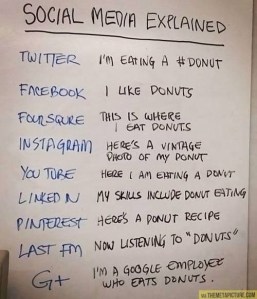 SOCIAL MEDIA EXPLAINED
TWITTER I'M EATING A #DONUT
FACEBOOK I LIKE DONUTS
FOURSQURE THIS IS WHERE
I EAT DONUTS
INSTAGRAM HERE'S A VINTAGE
PHOTO OF MY DONUT
YOU TUBE HERE I AM EATING A DONUT
LINKED IN MY SKILLS INCLUDE DONUT EATING
PINTEREST HERE'S A DONUT RECIPE
LAST FM NOW LISTENING TO "DONUTS"
G+ I'M A GOOGLE EMPLOYEE
WHO EATS DONUTS.
THEMETAPICTURE.COM